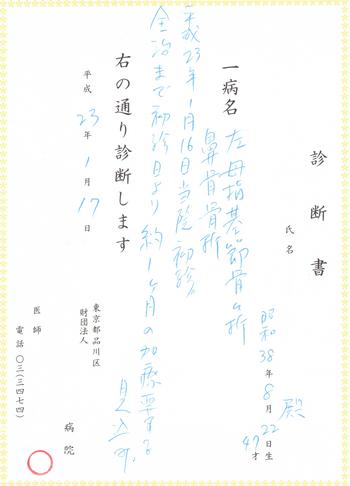 診断書
氏名
殿
昭和38年8月22日生
47才
一病名
左母指基節骨々折
鼻骨骨折
平成23年1月16日当院初診
全治まで初診日より約1ヶ月の加療要する
見込み。
右の通り診断します
平成23年1月17日
東京都品川区
財団法人
病院
医師
電話〇三(三四七四)